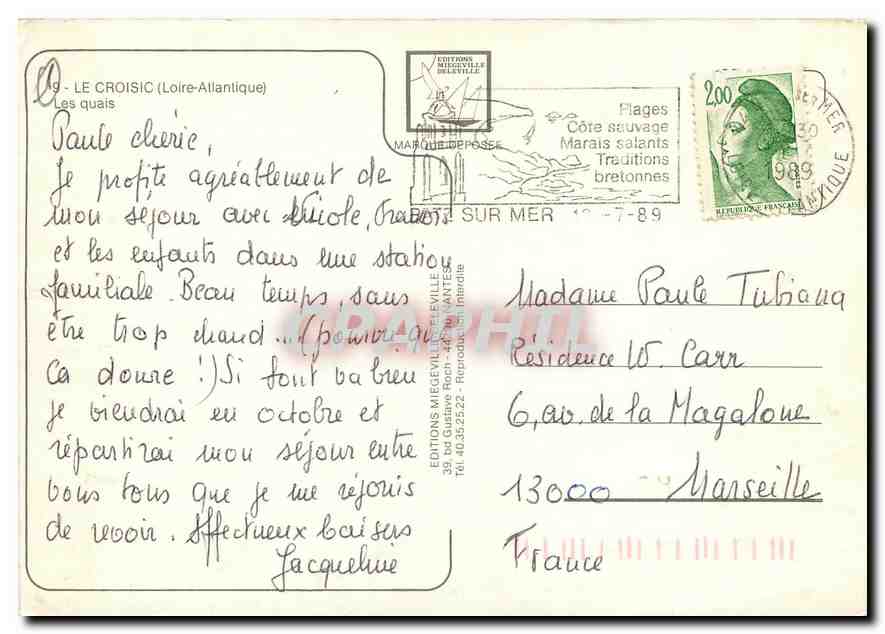 9 - LE CROISIC (Loire-Atlantique)
Les quais
Paule chérie,
Je profite agréablement de
mon séjour avec Nicole, Francis
et les enfants dans une station
familiale. Beau temps, sans
être trop chaud... (pourvu que
ça doure !) Si tout va bien
je viendrai en octobre et
répartirai mon séjour entre
vous tous que je me réjouis
de revoir. Affectueux baisers
Jacqueline
EDITIONS
MIEGEVILLE
DELEVILLE
MARQUE DEPOSEE
Plages
Côte sauvage
Marais salants
Traditions
bretonnes
BATZ SUR MER -7-89
2,00
REPUBLIQUE FRANCAISE
MER
30
1989
ANTIQUE
EDITIONS MIEGEVILLE DELEVILLE
39, bd Gustave Roch - 44 NANTES
Tél. 40.35.25.22 - Reproduction interdite
CPAPHIL
Madame Paule Tubiana
Résidence W. Carr
6, av. de la Magalone
13000 Marseille
France